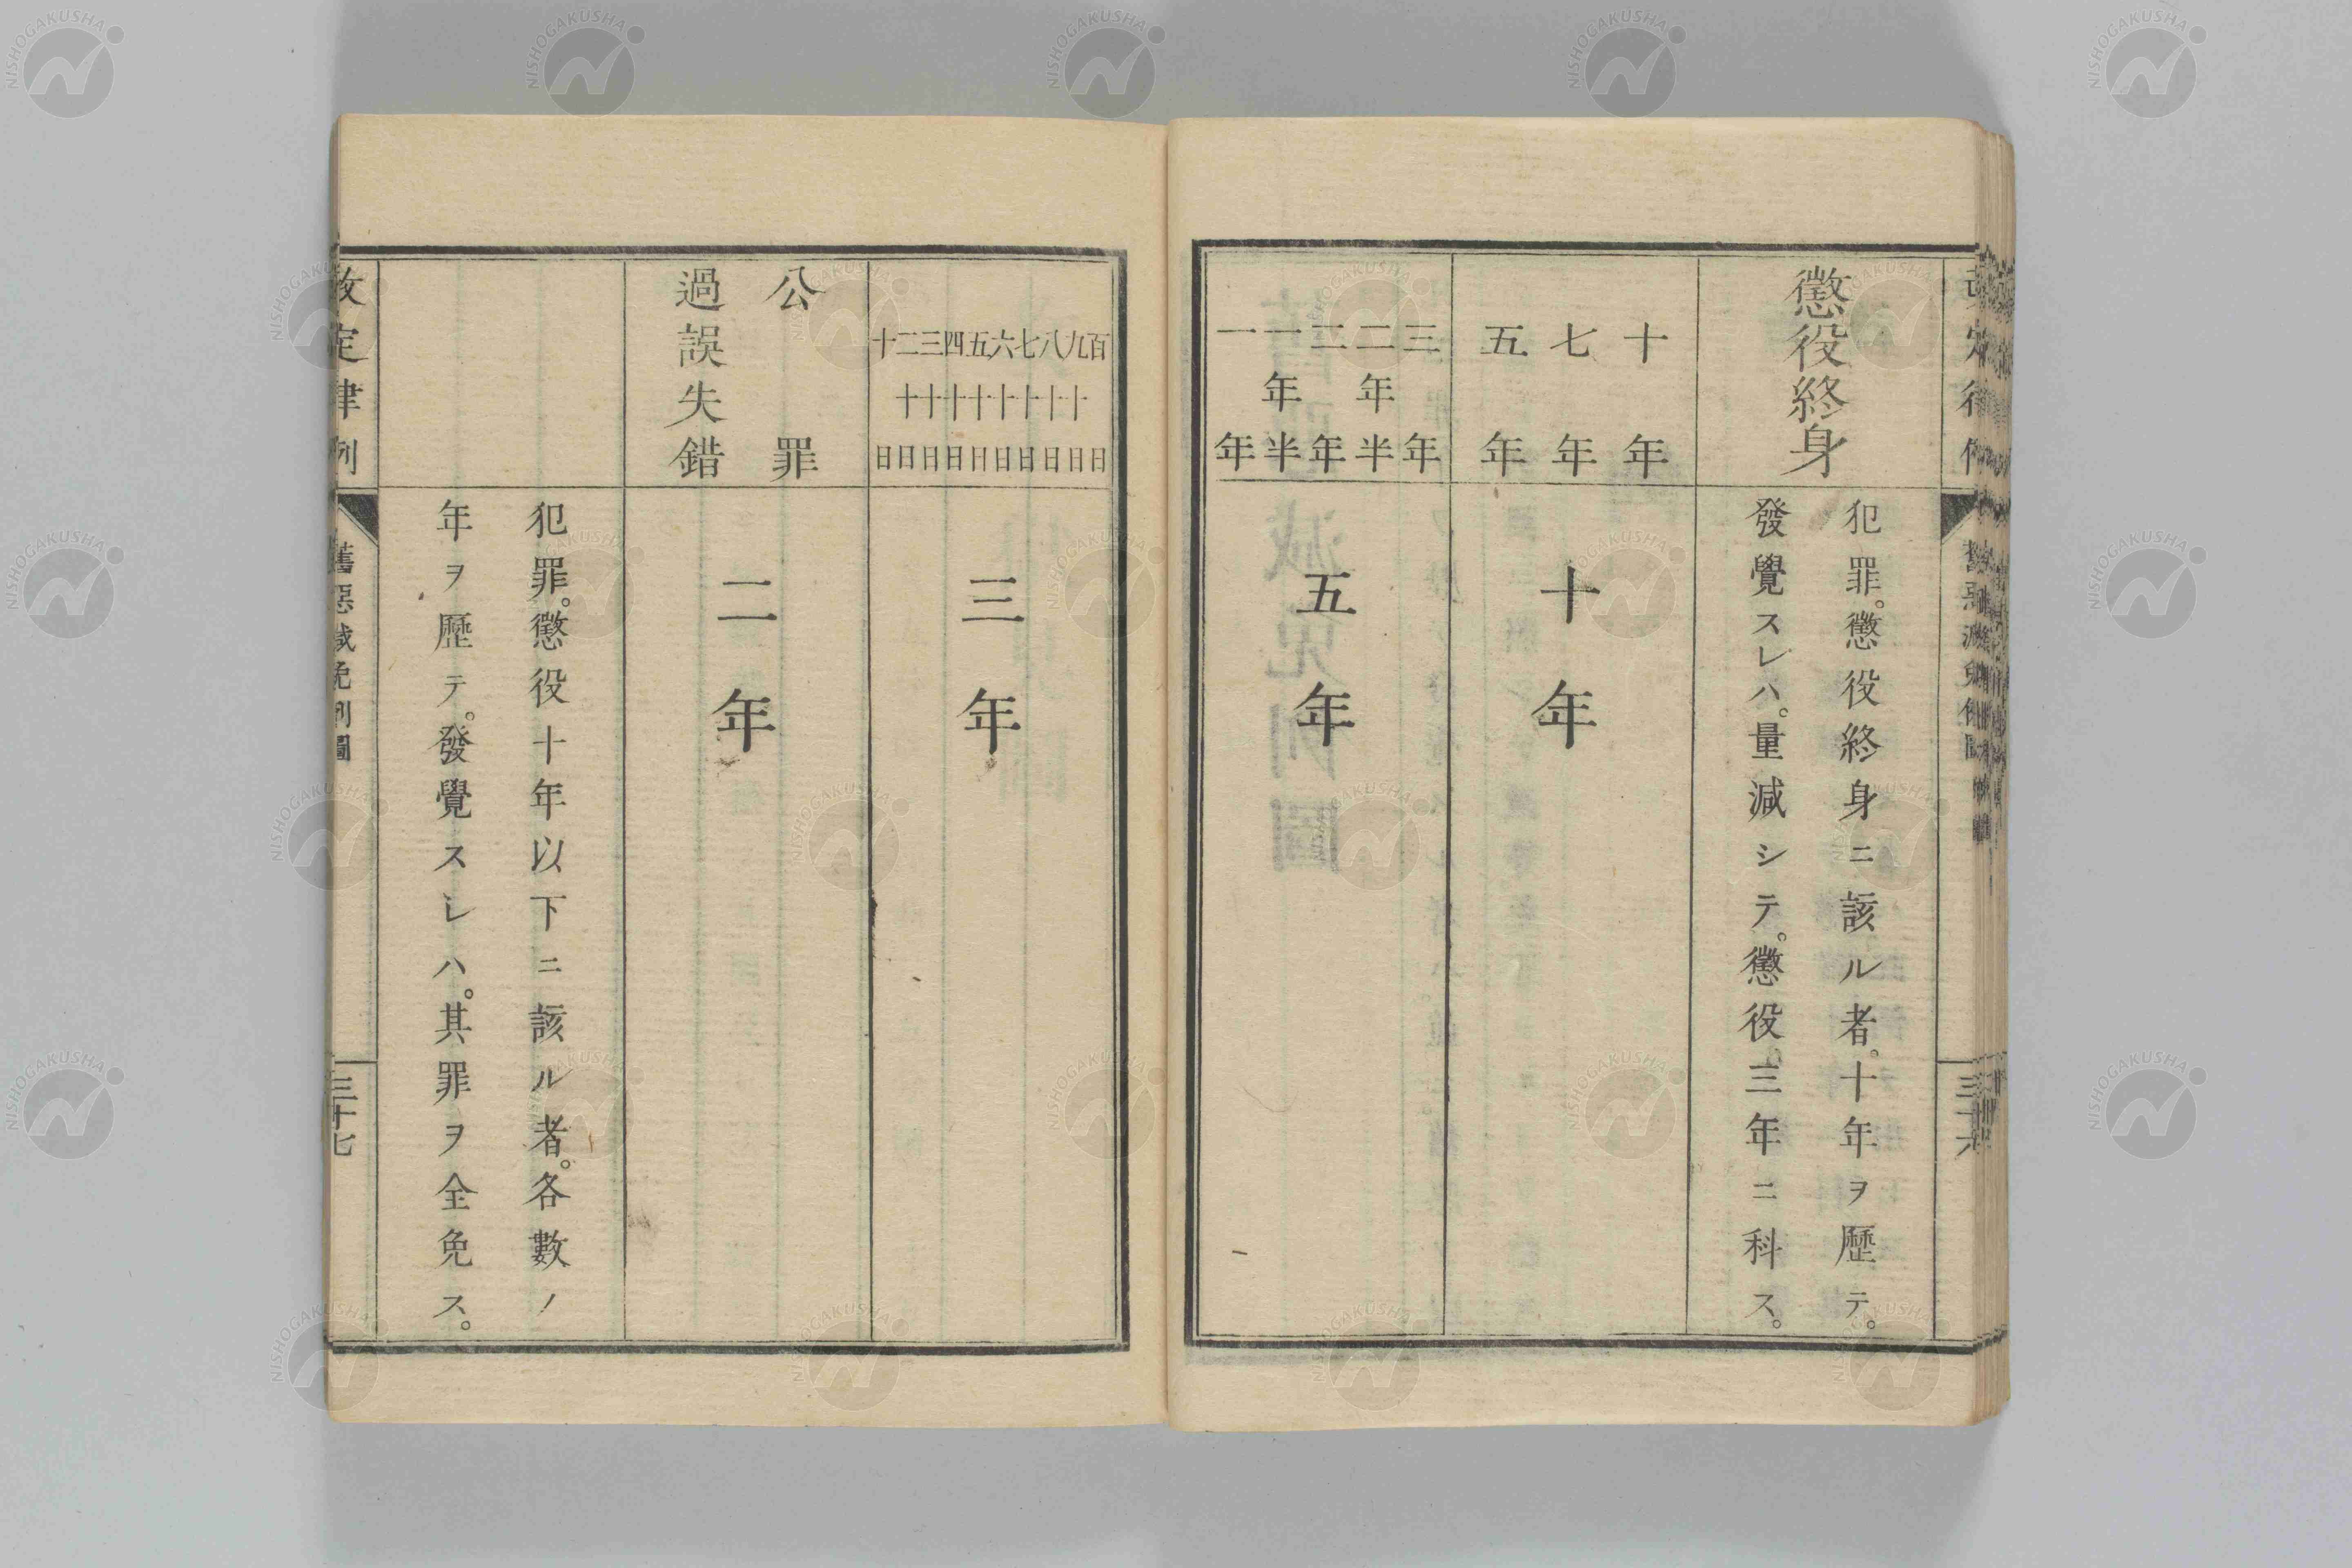 懲役終身
犯罪。懲役終身ニ該ル者。十年ヲ歷テ。
發覺スレハ。量減シテ。懲役。三年ニ科ス。
十年
七年
五年
十年
三年
二年半
二年
一年半
一年
五年
百日
九十日
八十日
七十日
六十日
五十日
四十日
三十日
二十日
十日
三年
公罪
過誤失錯
二年
犯罪。懲役十年以下ニ該ル者。各數ノ
年ヲ歷テ。發覺スレハ。其罪ヲ全免ス。
改定律例
舊惡減免例圖
三十七
NISHOGAKUSHA